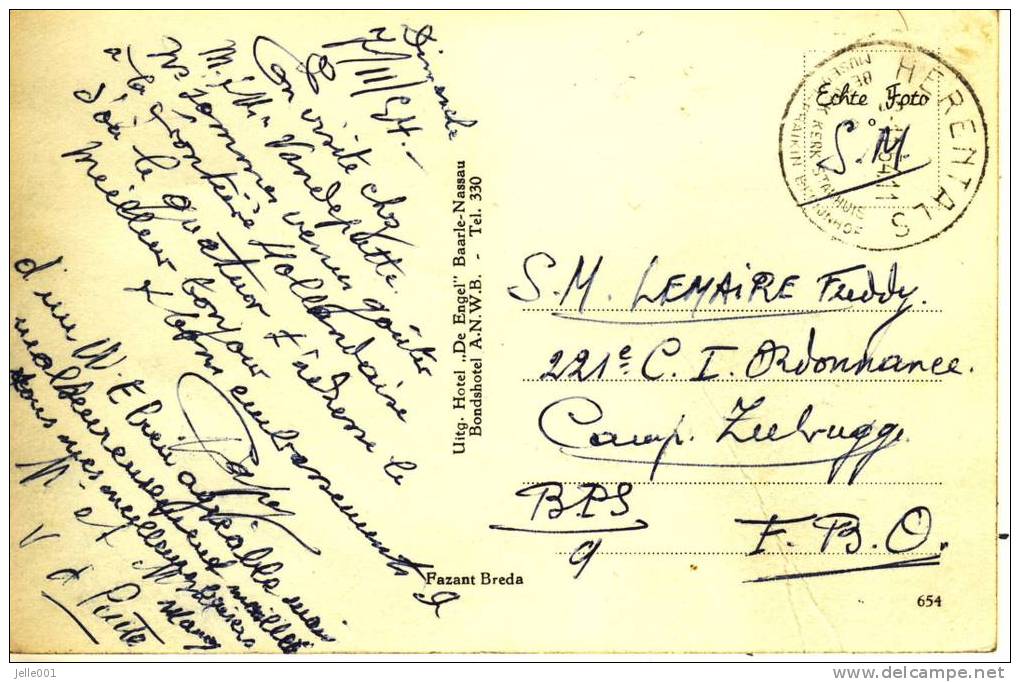 Dimanche
7/11/54.-
En visite chez
M. & Mme Vandeputte.
Ns sommes venus goûter
à la frontière Hollandaise
d'où le Quatuor t'adresse le
meilleur bonjour
& bons embrassements
Papa
d'un W. E. bien agréable mais
malheureusement mouillé
tous mes meilleurs baisers
Many
Mr et
V d Putte
Uitg. Hotel „De Engel" Baarle-Nassau
Bondshotel A.N.W.B. - Tel. 330
Fazant Breda
HERENTALS
Echte Foto
S.M
S.M. LEMAIRE Freddy.
221e C. I. Ordonnance.
Camp. Zeebrugge.
BPS
9
F. B. O.
654
jelle001
delcampe.net